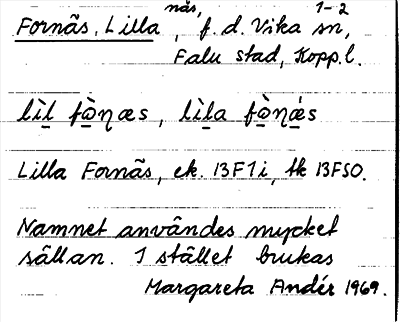 näs, 1-2
Fornäs, Lilla, f. d. Vika sn,
Falu stad, Kopp. l.
lìl fò̱ɳæs, lìla fò̱ɳǽs
Lilla Fornäs, ek. 13F1i, tk 13F SO.
Namnet användes mycket
sällan. I stället brukas
Margareta Andér 1969.